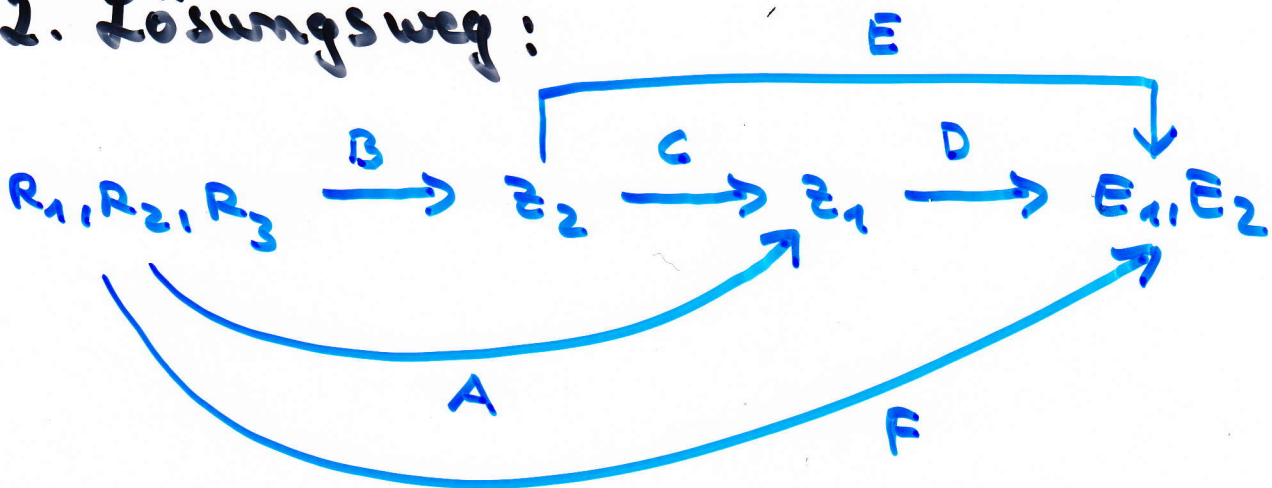 2. Lösungsweg:
E
B C D
R₁, R₂, R₃ Z₂ Z₁ E₁, E₂
A
F